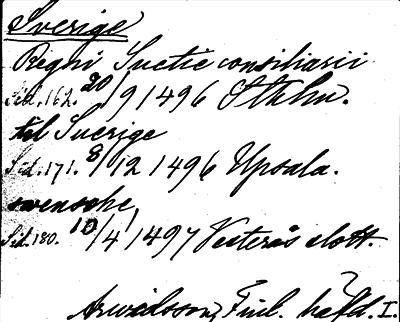 Sverige
Regni Suetie consiliarii
Sid. 162. 20/9 1496 Sthlm.
til Suerige
Sid. 171. 8/12 1496 Upsala.
swensche
Sid. 180. 10/4 1497 Vesterås slott.
Arwidsson, Finl. häfd. I.